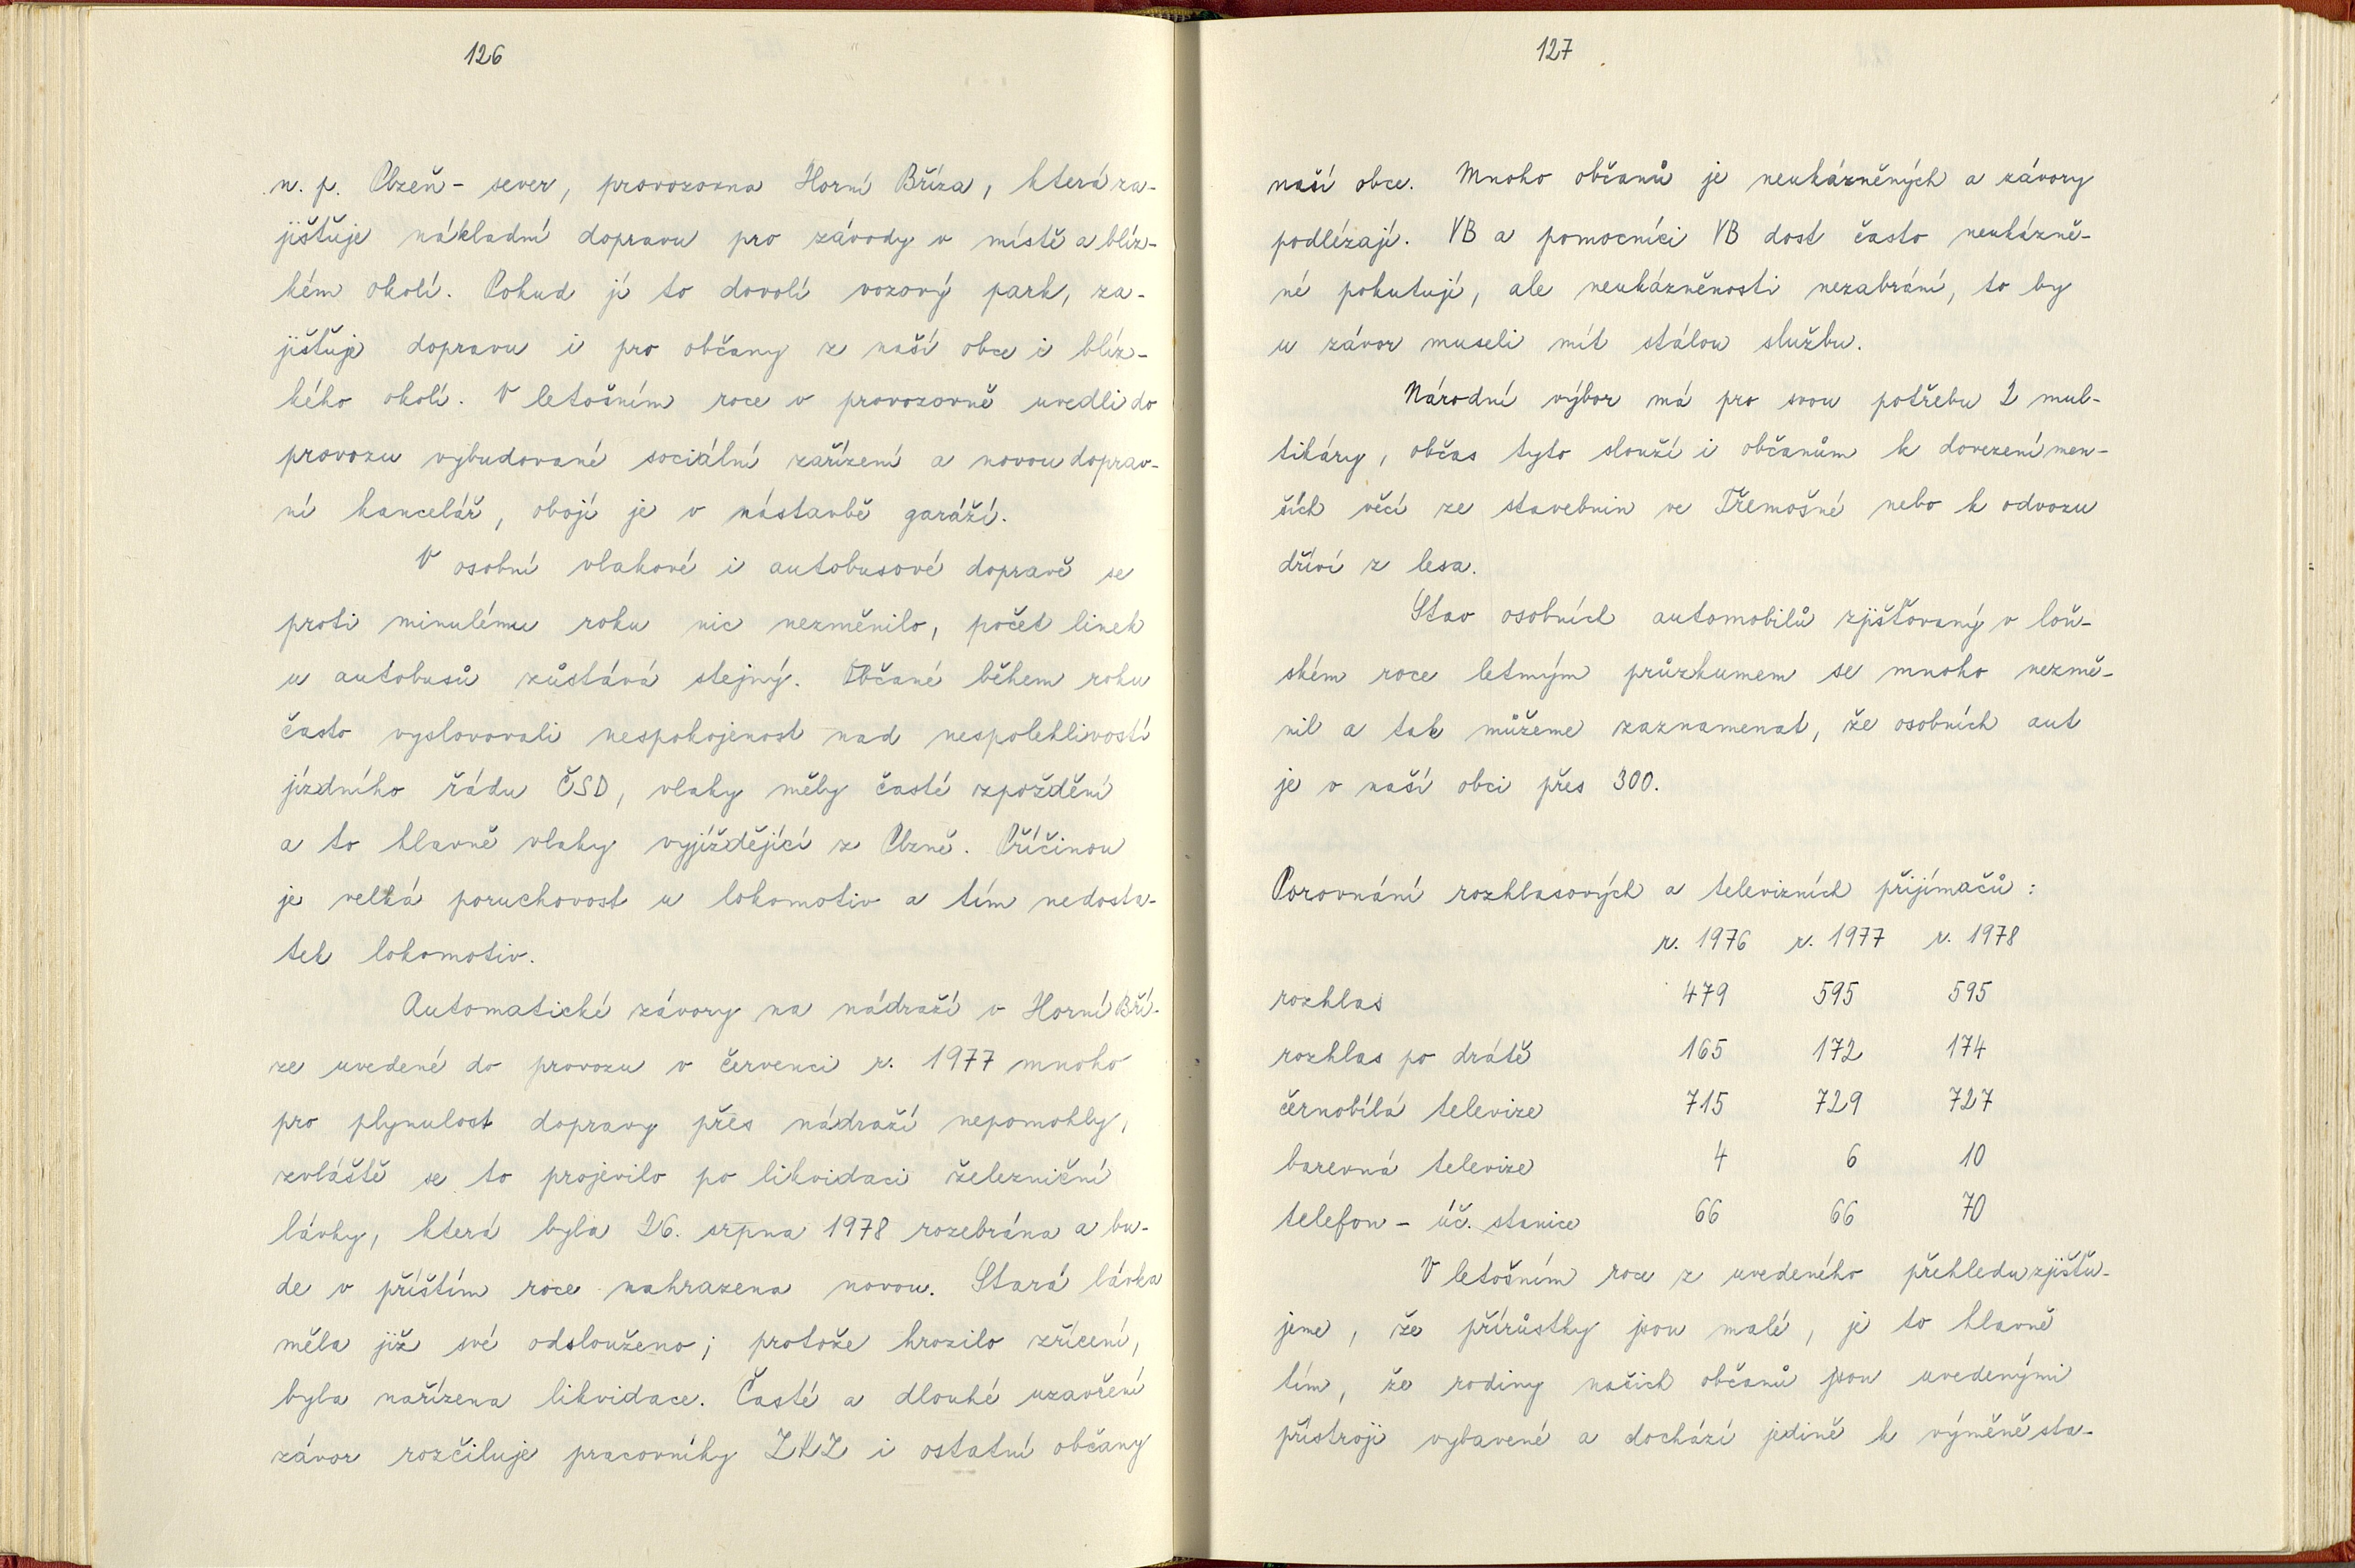 126
n. p. Plzeň - sever, provozovna Horní Bříza, která za-
jišťuje nákladní dopravu pro závody v místě a blíz-
kém okolí. Pokud jí to dovolí vozový park, za-
jišťuje dopravu i pro občany z naší obce i blíz-
kého okolí. V letošním roce v provozovně uvedli do
provozu vybudované sociální zařízení a novou doprav-
ní kancelář, obojí je v nástavbě garáží.
V osobní vlakové i autobusové dopravě se
proti minulému roku nic nezměnilo, počet linek
u autobusů zůstává stejný. Občané během roku
často vyslovovali nespokojenost nad nespolehlivostí
jízdního řádu ČSD, vlaky měly časté zpoždění
a to hlavně vlaky vyjíždějící z Plzně. Příčinou
je velká poruchovost u lokomotiv a tím nedosta-
tek lokomotiv.
Automatické závory na nádraží v Horní Bří-
ze uvedené do provozu v červenci r. 1977 mnoho
pro plynulost dopravy přes nádraží nepomohly,
zvláště se to projevilo po likvidaci železniční
lávky, která byla 26. srpna 1978 rozebrána a bu-
de v příštím roce nahrazena novou. Stará lávka
měla již své odslouženo; protože hrozilo zřícení,
byla nařízena likvidace. Časté a dlouhé uzavření
závor rozčiluje pracovníky ZKZ i ostatní občany
127
naší obce. Mnoho občanů je neukázněných a závory
podlézají. VB a pomocníci VB dost často neukázně-
né pokutují, ale neukázněnosti nezabrání, to by
u závor museli mít stálou službu.
Národní výbor má pro svou potřebu 2 mul-
tikáry, občas tyto slouží i občanům k dovezení men-
ších věcí ze stavebnin ve Třemošné nebo k odvozu
dříví z lesa.
Stav osobních automobilů zjišťovaný v loň-
ském roce letmým průzkumem se mnoho nezmě-
nil a tak můžeme zaznamenat, že osobních aut
je v naší obci přes 300.
Porovnání rozhlasových a televizních přijímačů:
r. 1976 r. 1977 r. 1978
rozhlas 479 595 595
rozhlas po drátě 165 172 174
černobílá televize 715 729 727
barevná televize 4 6 10
telefon - úč. stanice 66 66 70
V letošním roce z uvedeného přehledu zjišťu-
jeme, že přírůstky jsou malé, je to hlavně
tím, že rodiny našich občanů jsou uvedenými
přístroji vybavené a dochází jedině k výměně sta-